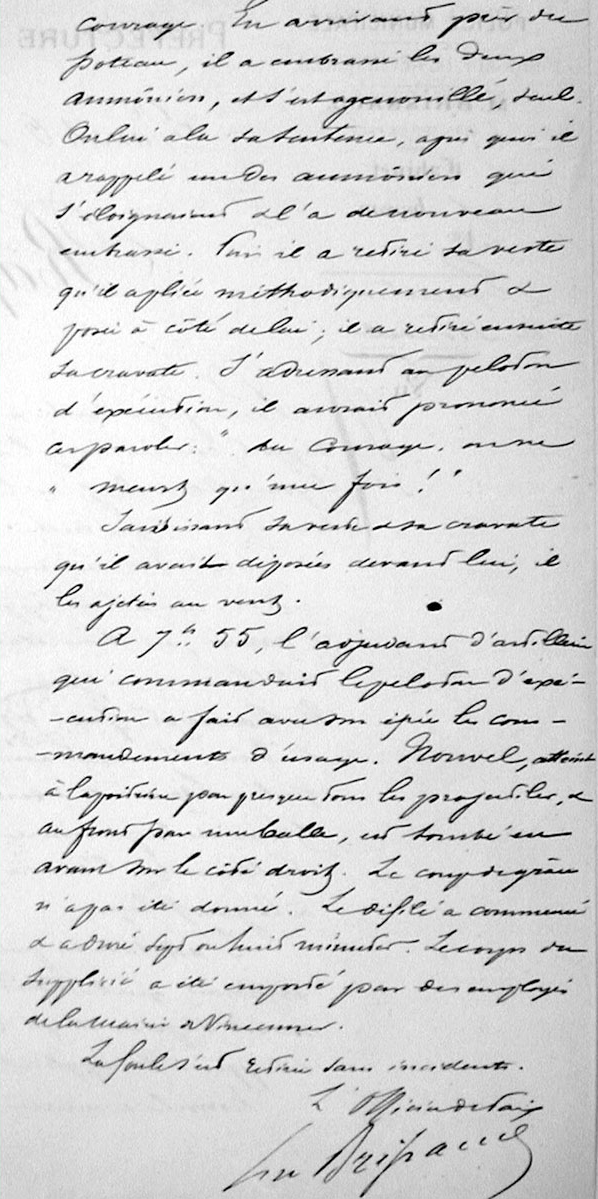 courage En arrivant près du
poteau, il a embrassé les deux
aumôniers, et s'est agenouillé, seul.
On lui a lu sa sentence, après quoi il
a rappelé un des aumôniers qui
s'éloignaient & l'a de nouveau
embrassé. Puis il a retiré sa veste
qu'il a pliée méthodiquement &
posée à côté de lui ; il a retiré ensuite
sa cravate. S'adressant au peloton
d'exécution, il aurait prononcé
ces paroles : " Du courage. on ne
" meurt qu'une fois ! "
Saisissant sa veste & sa cravate
qu'il avait déposées devant lui, il
les a jetées au vent.
A 7h. 55, l'adjudant d'artillerie
qui commandait le peloton d'exé-
-cution a fait avec son épée les com-
-mandements d'usage. Nouvel, atteint
à la poitrine par presque tous les projectiles, &
au front par une balle, est tombé en
avant sur le côté droit. Le coup de grâce
n'a pas été donné. Le défilé a commencé
& a duré sept ou huit minutes. Le corps du
supplicié a été emporté par des employés
de la Mairie de Vincennes.
La foule s'est retirée sans incidents.
L'Officier de Paix
PREFECTURE